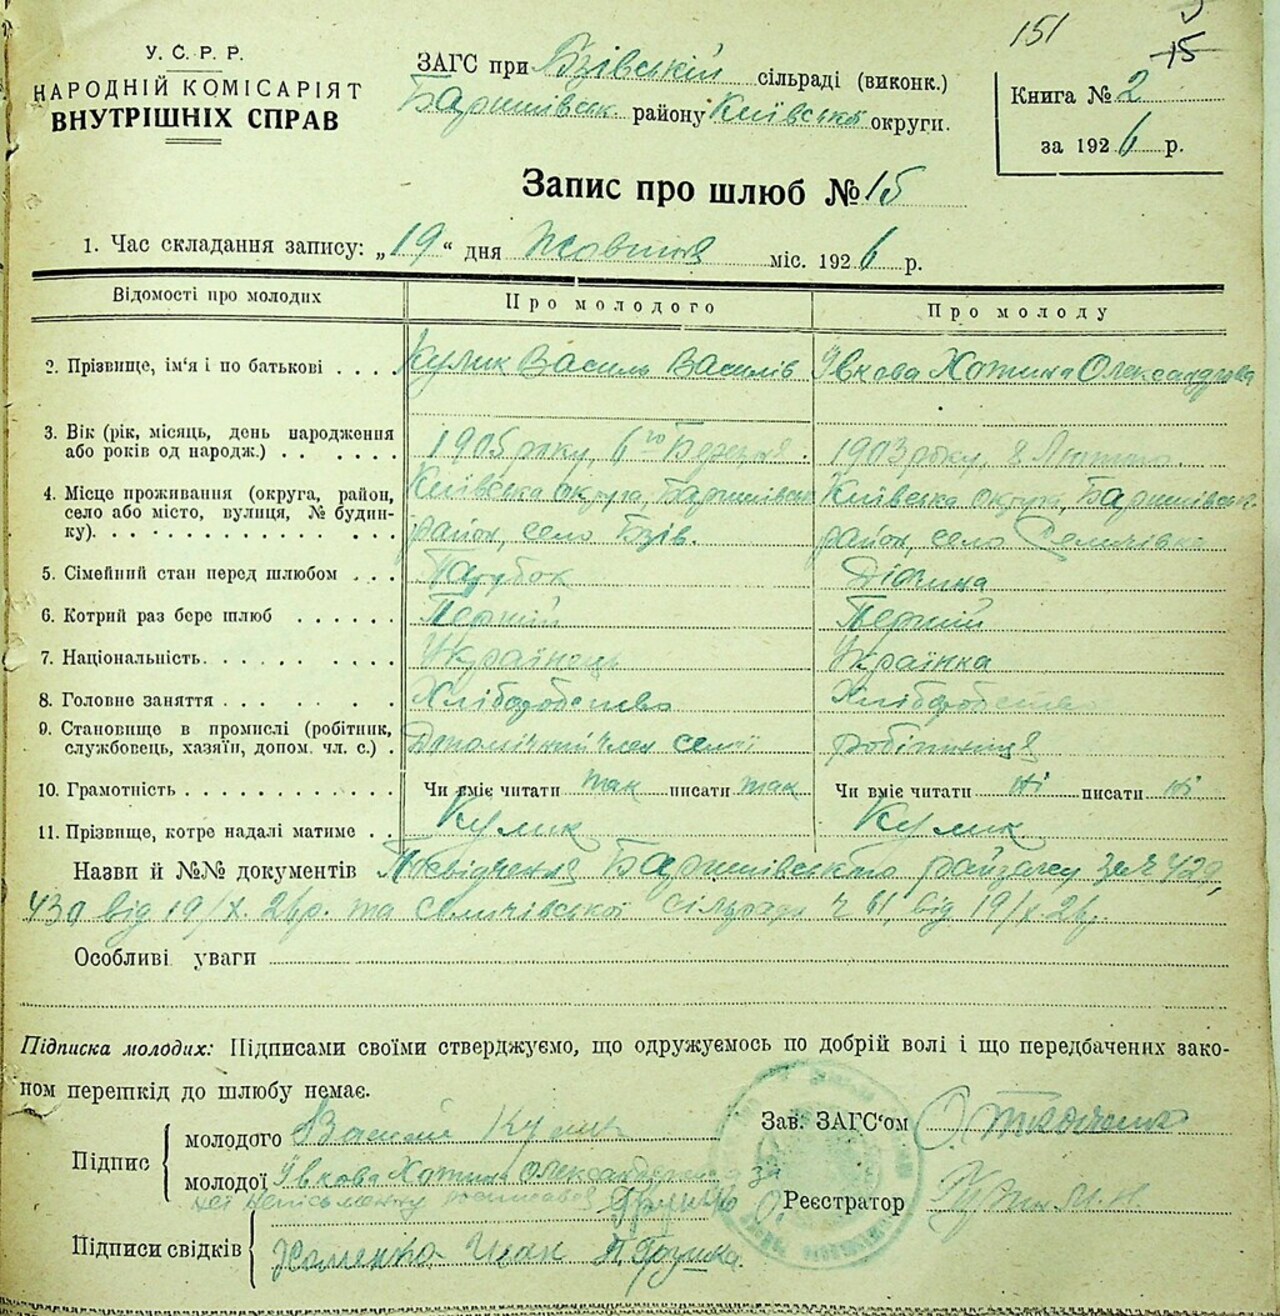 151
15
У.С.Р.Р.
НАРОДНІЙ КОМІСАРІЯТ
ВНУТРІШНІХ СПРАВ
ЗАГС при Бзівській сільраді (виконк.)
Баришівськ. району Київської округи.
Книга № 2
за 1926 р.
Запис про шлюб № 15
1. Час складання запису: „19“ дня Жовтня міс. 1926 р.
Відомості про молодих Про молодого Про молоду
2. Прізвище, ім'я і по батькові . . . . Кулик Василь Василів Явкова Хотина Олександрова
3. Вік (рік, місяць, день народження
або років од народж.) . . . . . . 1905 року, 6го Березня. 1903 року, 8 Лютого.
4. Місце проживання (округа, район, Київська округа, Баришівськ Київська округа, Баришівськ.
село або місто, вулиця, № будин-
ку). район, село Бзів. район, село Селичівка
5. Сімейний стан перед шлюбом . . . Парубок Дівчина
6. Котрий раз бере шлюб . . . . . . Перший Перший
7. Національність. Українець Українка
8. Головне заняття Хліборобство Хліборобство
9. Становище в промислі (робітник,
службовець, хазяїн, допом. чл. с.) . Допомічний член семї робітниця
10. Грамотність Чи вміє читати так писати так Чи вміє читати ні писати ні
11. Прізвище, котре надалі матиме . . Кулик Кулик
Назви й №№ документів Посвідчення Баришівського райзагсу за ч 429,
430 від 19/X. 26р. та Селичівської сільради ч 61, від 19/X. 26.
Особливі уваги
Підписка молодих: Підписами своїми стверджуємо, що одружуємось по добрій волі і що передбачених зако-
ном перешкід до шлюбу немає.
Підпис
молодого Василь Кулик
молодої Явкова Хотина Олександрова за
неї неписьменну
Підписи свідків
Хоменко Іван П.
Зав. ЗАГС'ом О. Ткаченко
Реєстратор